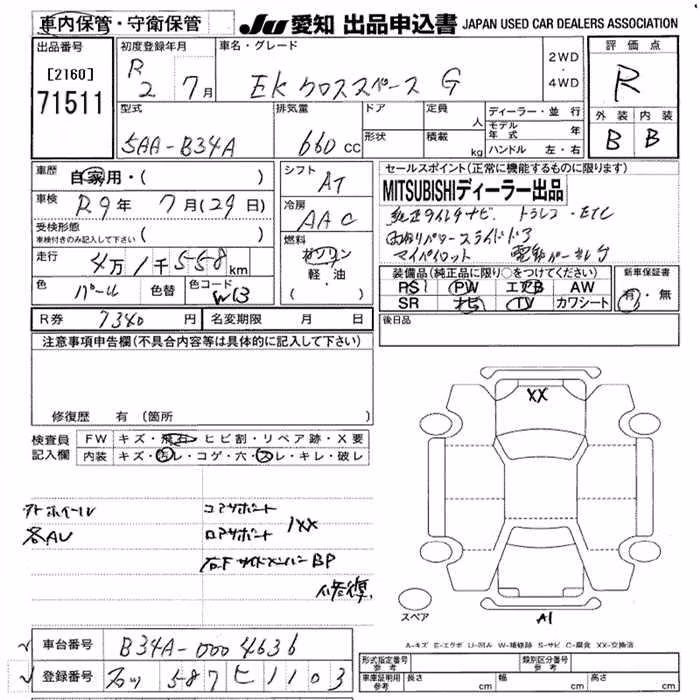 車内保管・守衛保管
JU 愛知 出品申込書 JAPAN USED CAR DEALERS ASSOCIATION
出品番号
[2160]
71511
初度登録年月
R 2 7月
車名・グレード
EKクロススペース G
2WD
・
4WD
評価点
R
型式
5AA-B34A
排気量
660 CC
ドア
形状
定員 人
積載 kg
ディーラー・並行
モデル年式 年
ハンドル 左・右
外装 内装
B B
車歴 自家用・( )
車検 R9年 7月(29日)
受検形態
車検付きのみ記入して下さい ( )
走行 4万1千558km
色 パール 色替 色コード W13
シフト AT
冷房 AAC
燃料 ガソリン
軽・油
( )
セールスポイント(正常に機能するものに限ります)
MITSUBISHIディーラー出品
純正9インチナビ. ドラレコ・ETC
両側パワースライドドア
マイパイロット 電動パーキング
装備品(純正品に限り○をつけてください)
PS PW エアB AW
SR ナビ TV カワシート
新車保証書
有・無
R券 7340円 名変期限 月 日
後日品
注意事項申告欄(不具合内容等は具体的に記入して下さい)
修復歴 有(箇所
検査員 FW キズ・飛石・ヒビ割・リペア跡・X要
記入欄 内装 キズ・汚レ・コゲ・穴・スレ・キレ・破レ
ホイール コアサポート
各AU ロアサポート 1XX
右F サイドメンバーBP
修復
XX
A1
スペア
A-キズ E-エクボ U-凹み W-補修跡 S-サビ C-腐食 XX-交換済
車台番号 B34A-0004636
登録番号 587 ヒ 1103
形式指定番号
参考
類別区分番号
参考
車庫証明用
参考
長さ cm 幅 cm 高さ cm